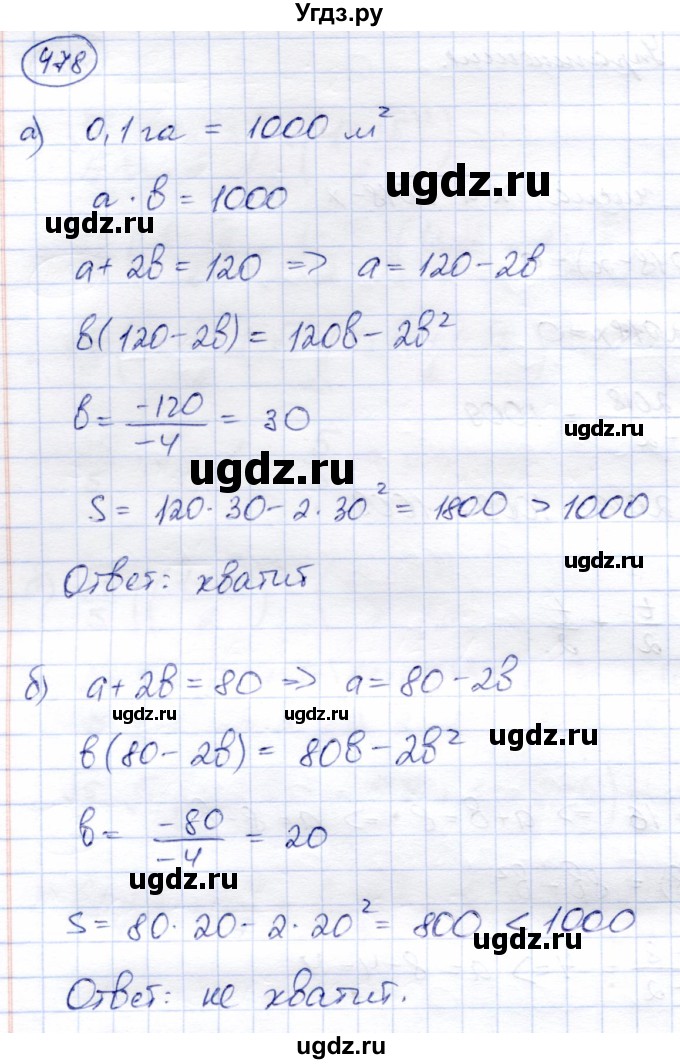 Угдз.ру
478
а) 0,1 га = 1000 м²
ugdz.ru
a · b = 1000
ugdz.ru
a + 2b = 120 => a = 120 - 2b
b(120 - 2b) = 120b - 2b²
b = -120/-4 = 30
ugdz.ru
ugdz.ru
S = 120 · 30 - 2 · 30² = 1800 > 1000
ugdz.ru
Ответ: хватит
б) a + 2b = 80 => a = 80 - 2b
ugdz.ru ugdz.ru
b(80 - 2b) = 80b - 2b²
ugdz.ru
b = -80/-4 = 20
ugdz.ru
S = 80 · 20 - 2 · 20² = 800 < 1000
ugdz.ru
Ответ: не хватит.
ugdz.ru